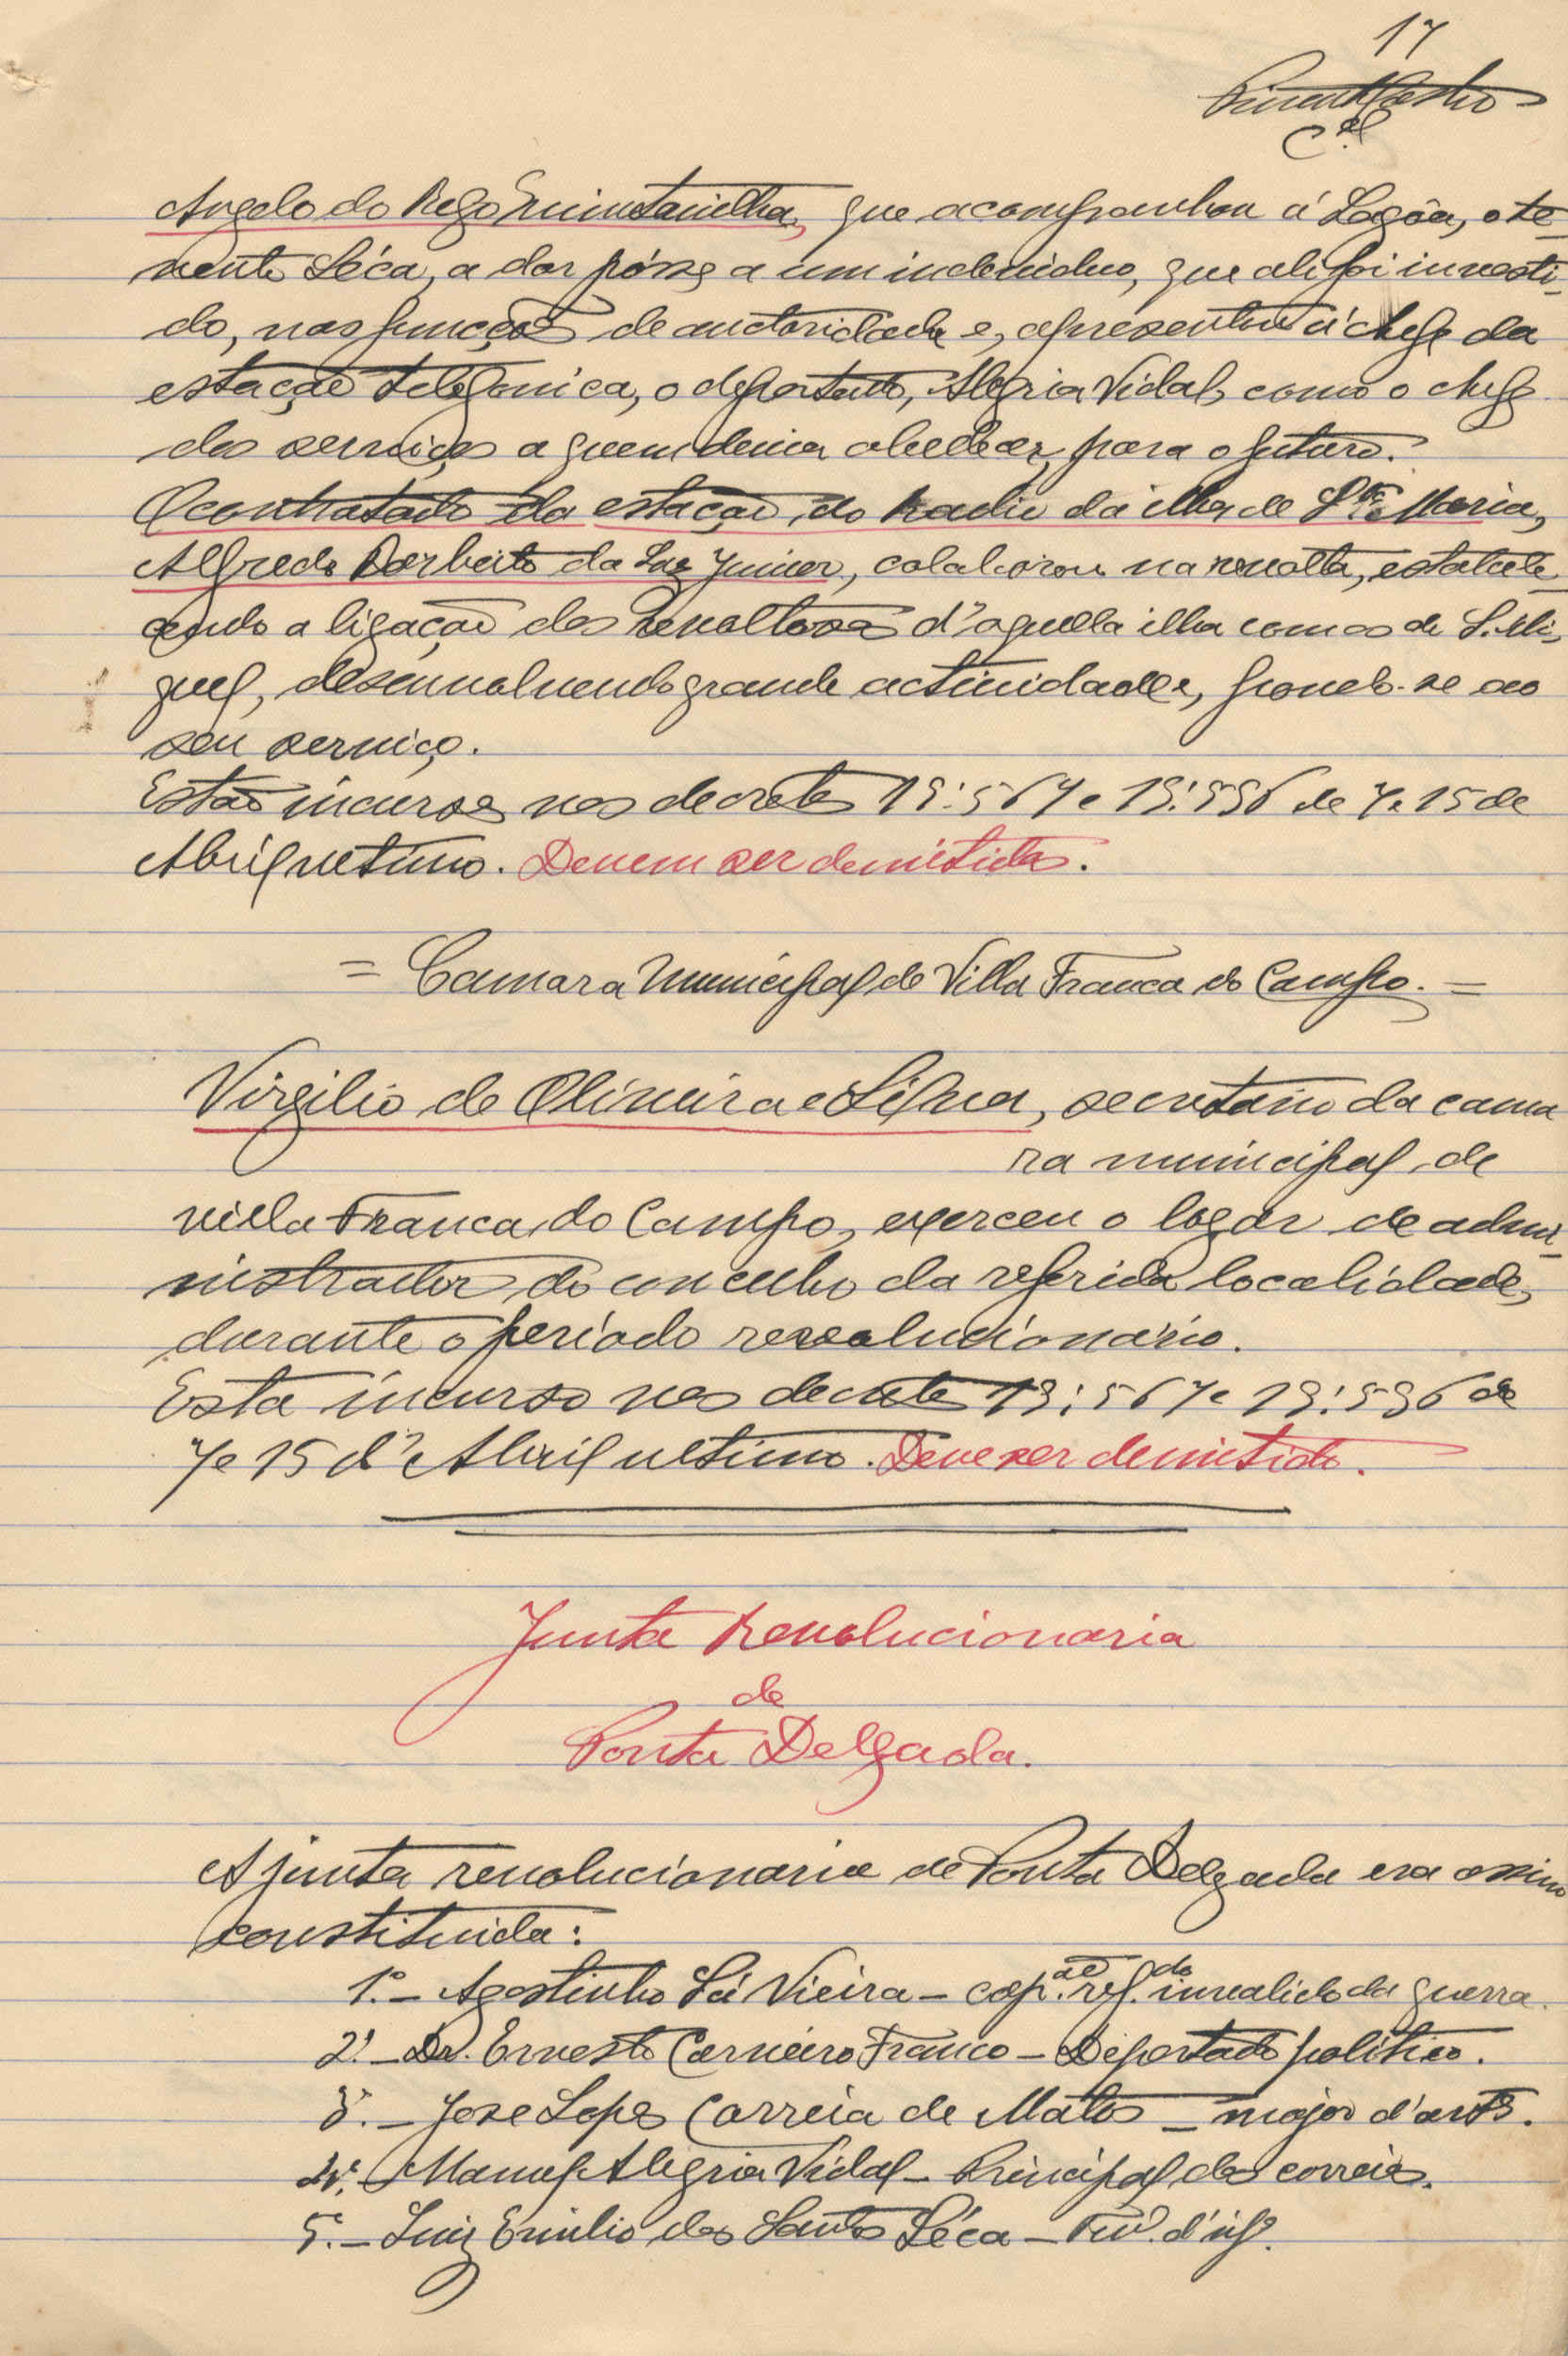 17
Angelo do Rego Quintanilha, que acompanhou á Lagôa, o te-
nente Séca, a dar pósse a um individuo, que ali foi investi-
do, nas funcções de auctoridade e, apresentou á chefe da
estação telefonica, o deportado, Alegria Vidal, como o chefe
dos serviços a quem devia obedecer, para o futuro.
O contratado da estação do Radio da ilha de Stª Maria,
Alfredo Barbeito da Luz Junior, colaborou na revolta, estabele-
cendo a ligação dos revoltosos d'aquella ilha com os de S. Mi-
guel, desenvolvendo grande actividade, pondo-se ao
seu serviço.
Estão incursos nos decretos 19:567 e 19:596 de 7 e 15 de
Abril ultimo. Devem ser demitidos.
= Camara Municipal de Villa Franca do Campo. =
Virgilio de Oliveira e Silva, secretario da cama
ra municipal de
villa Franca do Campo, exerceu o logar de admi-
nistrador do concelho da referida localidade,
durante o periodo revolucionário.
Está incurso nos decretos 19:567 e 19:596 de
7 e 15 d'Abril ultimo. Deve ser demitido.
Junta Revolucionaria
de
Ponta Delgada.
A junta revolucionaria de Ponta Delgada era assim
constituida:
1.º - Agostinho Sá Vieira - cap.ão ref.do invalido da guerra.
2.º - Dr. Ernesto Carneiro Franco - Deportado politico.
3.º - Jose Lopes Correia de Matos - major d'artª.
4.º - Manuel Alegria Vidal - Principal dos correios.
5.º - Luiz Emilio dos Santos Séca - Ten.te d'infª.